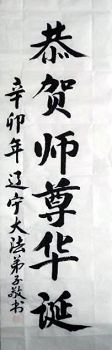 恭贺师尊华诞
辛卯年辽宁大法弟子敬书